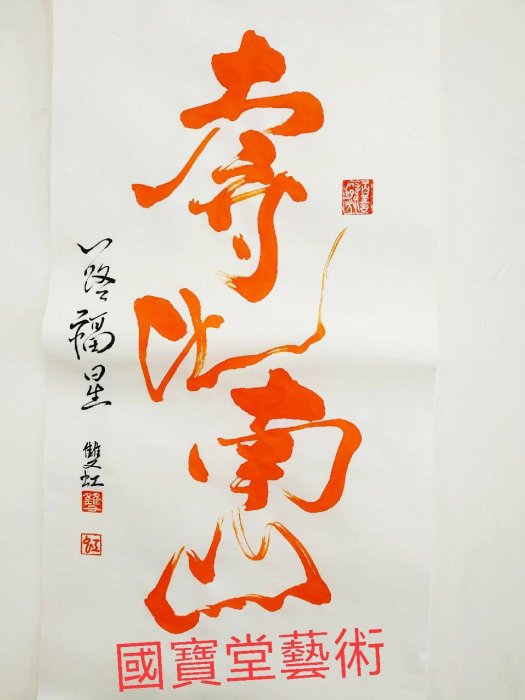 壽比南山
一路福星
雙虹
雙
虹
國寶堂藝術